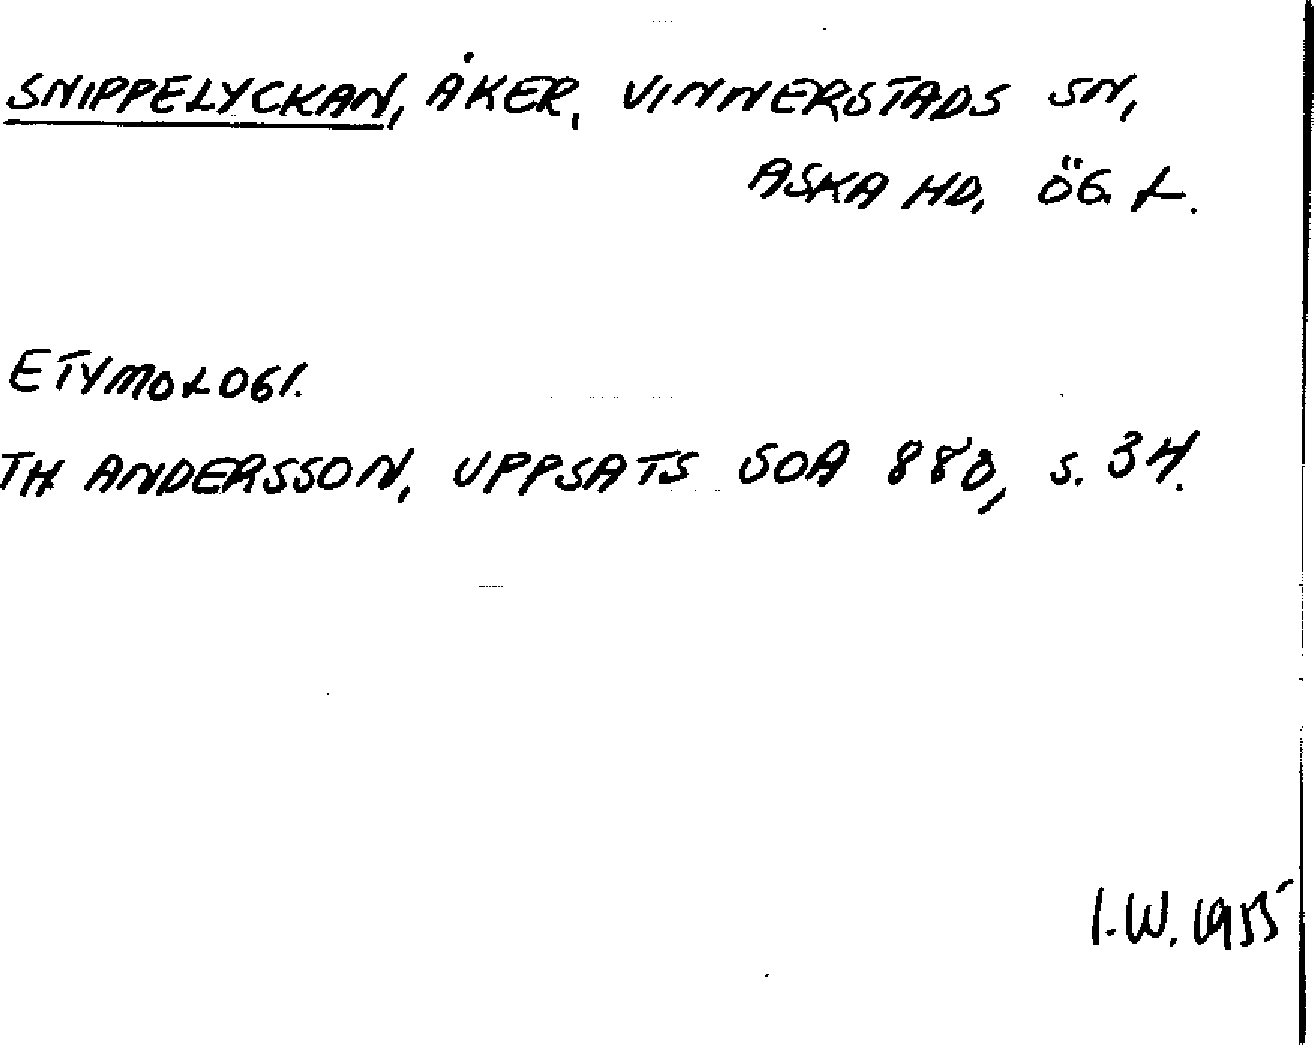 SNIPPELYCKAN, ÅKER, VINNERSTADS SN,
ASKA HD, ÖG. L.
ETYMOLOGI.
TH ANDERSSON, UPPSATS SOA 883, s. 34.
I.W. 1955